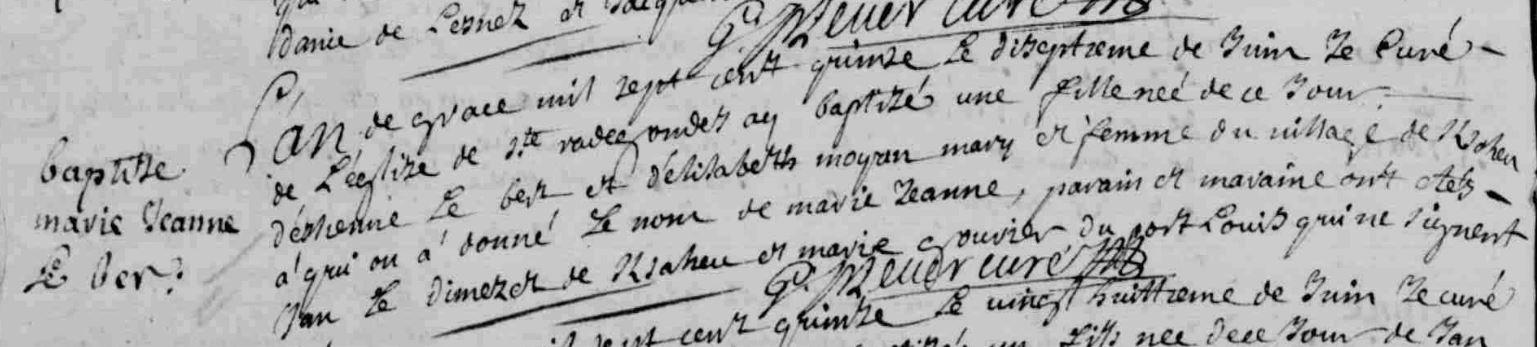 danie de Lesnez et
G. Meuer curé
L'an de grace mil sept cent quinze le diseptieme de Juin Je Curé
de L'eglize de s.te radegondes ay baptizé une fille neé de ce Jour
baptise
d'estienne Le ber et d'elisabeth moyan mary et femme du village de
marie Jeanne
a' qui on a' donné Le nom de marie Jeanne, parain et maraine ont
Le ber
Jan Le dimezet de et marie du port Louis qui ne signent
G. Meuer curé
sept cent quinze Le vingt huittieme de Juin Je curé
un fils nee de ce Jour de Jan